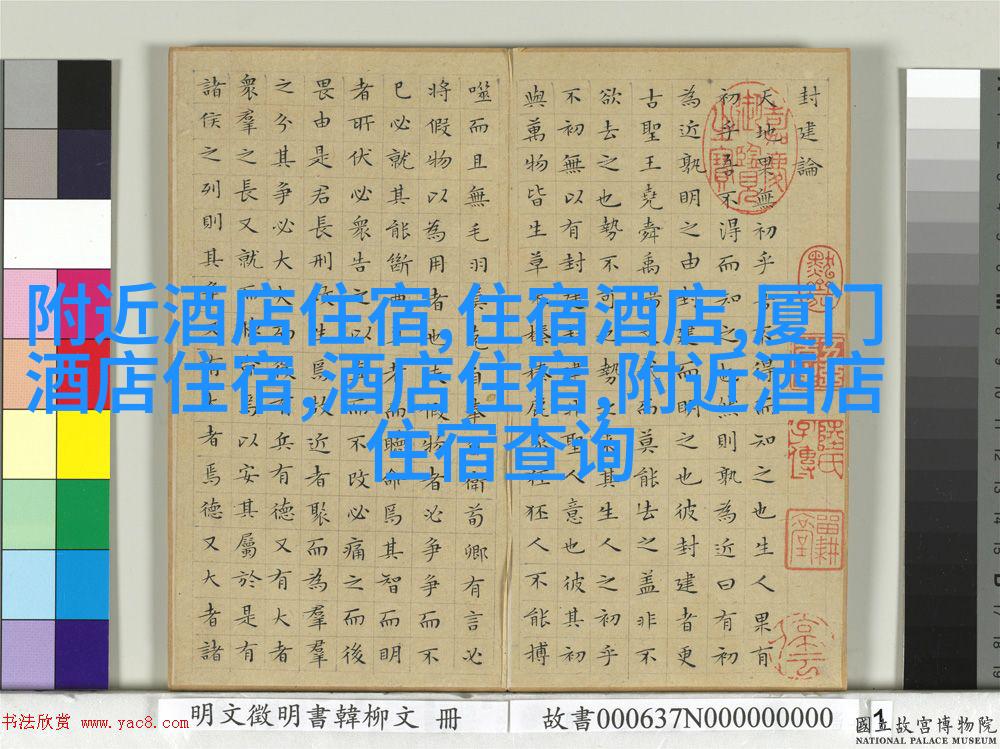 封建論
天地果無初乎吾不得而知之也生人果有
初乎吾不得而知之也然則孰為近曰有初
為近孰明之由封建而明之也彼封建者更
古聖王堯舜禹湯而莫能去之蓋非不
欲去之也勢不可也勢之來其生人之初乎
不初無以有封建封建非聖人意也彼其初
與萬物皆生草木榛榛鹿豕狉狉人不能搏
噬而且無毛羽莫克自奉自衛荀卿有言必
將假物以為用者也夫假物者必爭爭而不
已必就其能斷曲直者而聽命焉其智而明
者所伏必衆告之以直而不改必痛之而後
畏由是君長刑政生焉故近者聚而為羣
之分其爭必大大而後有兵有德又有大者
衆羣之長又就而聽命焉以安其屬於是有
諸侯之列則其爭又有大者焉德又大者諸
附近酒店住宿,住宿酒店,厦门
酒店住宿,酒店住宿,附近酒店
住宿查询
嘉慶御覽之寶
書法欣賞 www.yac8.com
明文徵明書韓柳文 冊
故書000637N000000000
1
國立故宮博物院
NATIONAL PALACE MUSEUM